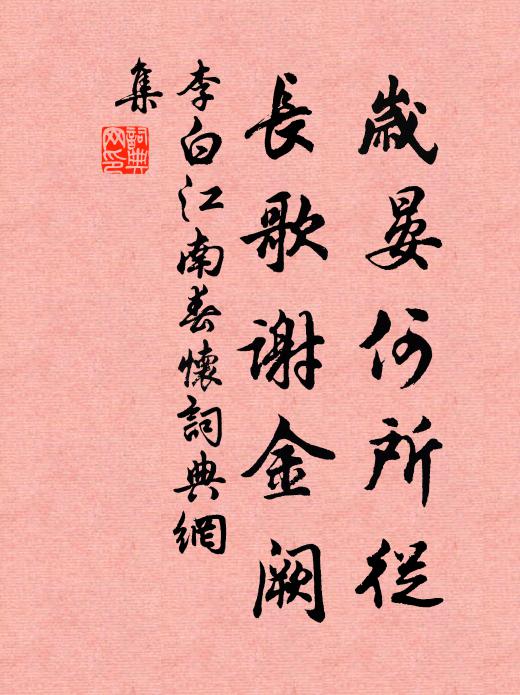 歲晏何所從
長歌謝金闕
李白江南春懷詞典網
集
詞典網印